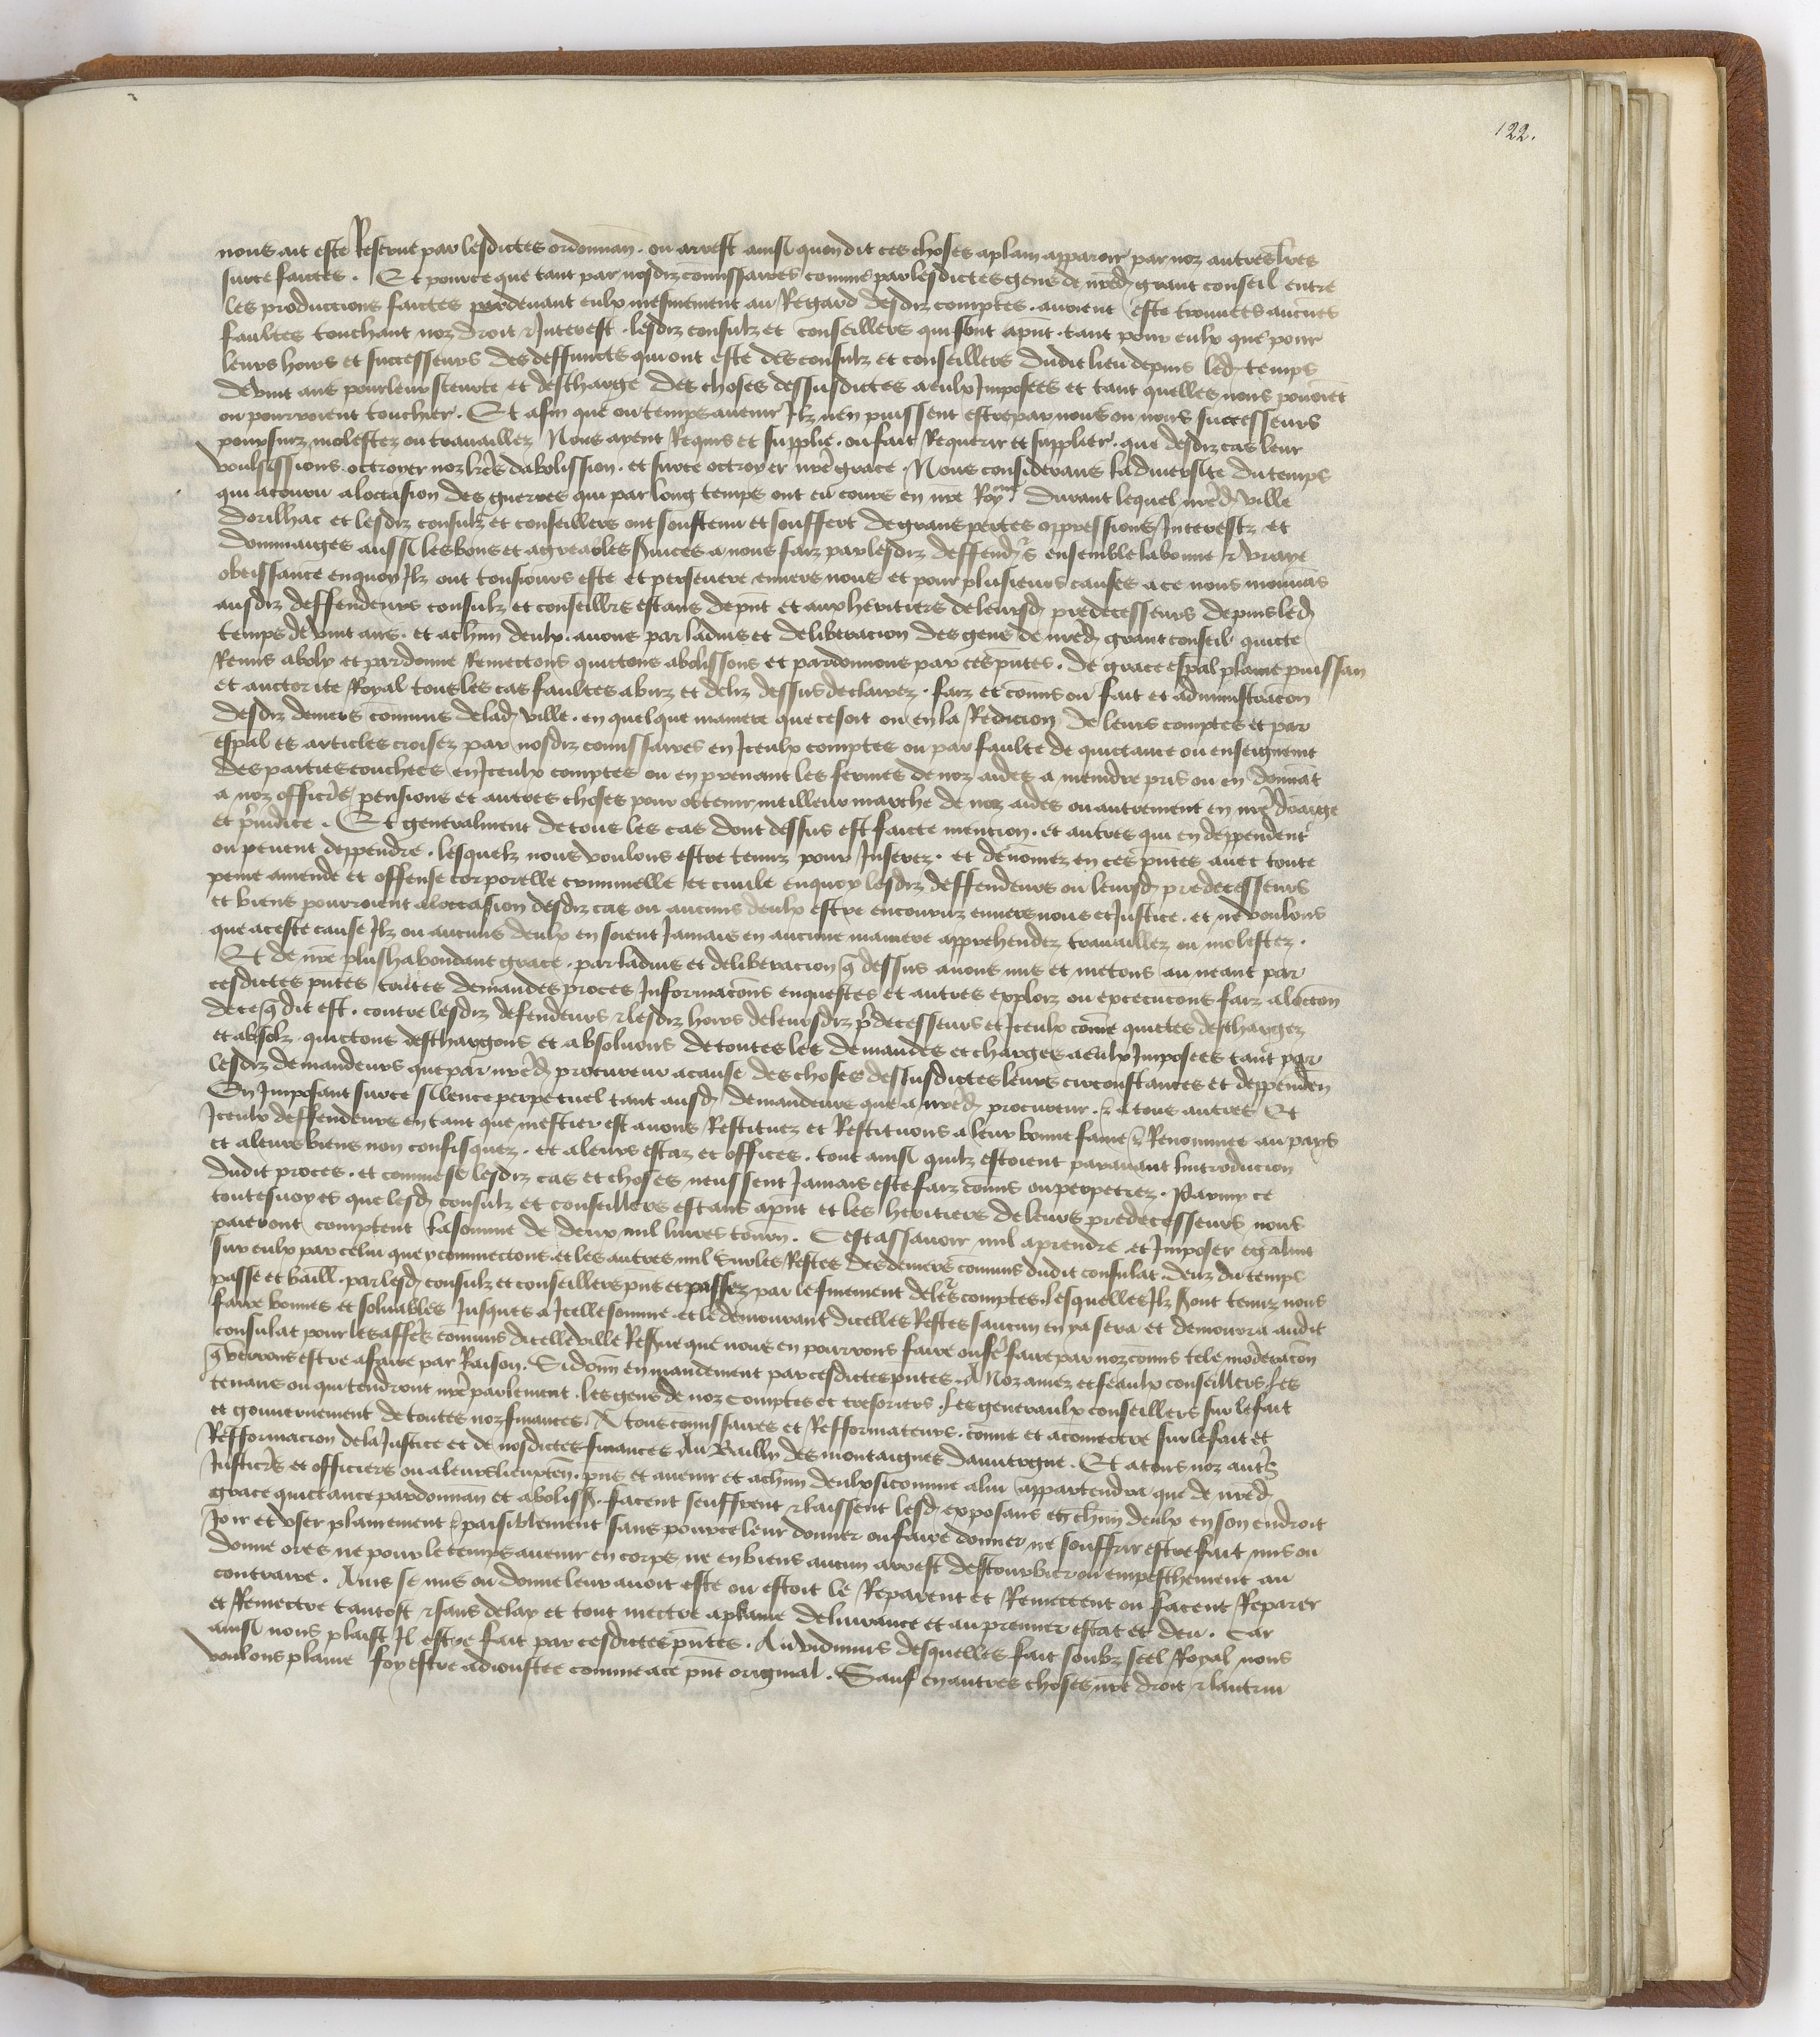 122.
nous ait este Reserue par lesdictes ordonnan. ou arrest ainsi quon dit ces choses aplain apparoir par noz autres lres
surce faictes. Et pource que tant par nosdiz comissaires comme par lesdictes gens de nred grant conseil entre
les productions faictes pardeuant eulx mesmement au Regard desdiz comptes. auroient este trouuees aucues
faultes touchant noz droit & Interest. lesdiz consulz et conseillers qui sont apnt. tant pour eulx que pour
leurs hoirs et successeurs des deffuncts qui ont este des consulz et conseillers dudit lieu depuis led temps
de vint ans pour leur seurte et descharge des choses dessusdictes a eulx Imposees et tant quelles nous pouoiet
ou pourroient touchier. Et afin que ou temps auenir Ilz nen puissent estre par nous ou noz successeurs
poursuiz molestez ou trauaillez Nous ayent Requis et supplie. ou fait Requerir et supplier. que desdiz cas leur
voulsissions octroyer noz lres dabolission. et surce octroyer nre grace. Nous considerans la diuersite du temps
qui a couru a loccasion des guerres qui par long temps ont eu cours en nre Royme durant lequel nred ville
dorilhac et lesdiz consulz et conseillers ont soustenu et souffert de grans pertes oppressions Interestz et
dommaiges aussi les bons et agreables seruices a nous faiz par lesdiz deffendrs ensemble la bonne & vraye
obeissance enquoy Ilz ont tousiours este et perseuere enuers nous et pour plusieurs causes a ce nous mouuas
ausdiz deffendeurs consulz et conseillrs estans de pnt et aux heritiers de leursd predecesseurs depuis led
temps de vint ans. et a chun deulx. auons par laduis et deliberacion des gens de nred grant conseil quicte
Remis aboly et pardonne Remectons quictons abolissons et pardonnons par ces pntes. de grace espal plaine puissan
et auctorite Royal tous les cas faultes abuz et deliz dessus declairez. faiz et comis ou fait et administracon
desdiz deniers comuns de lad ville. en quelque maniere que ce soit ou en la Redicion de leurs comptes et par
espal es articles croisez par nosdiz comissaires en Iceulx comptes ou par faulte de quictance ou enseignemt
des parties couchees en Iceulx comptes ou en prenant les fermes de noz aides a meindre pris ou en donnat
a noz officrs pensions et autres choses pour obtenir meilleur marche de noz aides ou autrement en nre domaige
et piudice. Et generalment de tous les cas dont dessus est faicte mention. et autres qui en deppendent
ou peuent deppendre. lesquelz nous voulons estre tenuz pour Inserez. et denomez en ces pntes auec toute
peine amende et offense corporelle criminelle et ciuile enquoy lesdiz deffendeurs ou leursd predecesseurs
et biens pourroient a loccasion desdiz cas ou aucuns deulx estre encouruz enuers nous et Justice. et ne voulons
que a ceste cause Ilz ou aucuns deulx en soient Jamais en aucune maniere apprehendez trauaillez ou molestez.
Et de nre plushabondant grace. par laduis et deliberacion q dessus auons mis et metons au neant par
cesdictes pntes toutes demandes proces Informacons enquestes et autres exploiz ou execucons faiz a loccon
de ce q dit est. contre lesdiz defendeurs & lesdiz hoirs de leursdiz pdecesseurs et Iceulx come quictes deschargez
et absolz. quictons deschargons et absoluons de toutes les demandes et charges a eulx Imposees tant par
lesdiz demandeurs que par nred procureur a cause des choses dessusdictes leurs circonstances et deppenden
En Imposant surce silence perpetuel tant ausd demandeurs que a nred procureur. & a tous autres Et
Iceulx deffendeurs en tant que mestier est auons Restituez et Restituons a leur bonne fame & Renommee au pays
et a leurs biens non confisquez. et a leurs estaz et offices. tout ainsi quilz estoient parauant lintroducion
dudit proces. et comme se lesdiz cas et choses neussent Jamais este faiz comis ou perpetrez. Parmy ce
toutesuoyes que lesd consulz et conseillers estans apnt et les heritiers de leurs predecesseurs nous
paieront comptent la somme de deux mil liures tourn. Cestassauoir mil a prendre et Imposer egalmt
sur eulx par celui que y commectons. et les autres mil sur les Restes des deniers comuns dudit consulat. deuz du temps
passe et baill. par lesd consulz et conseillers pns et passez par le finement de leurs comptes. lesquelles Ilz sont tenuz nous
faire bonnes et soluables Jusques a Icelle somme. et le demourant dicelles Restes saucun en ya sera et demoura audit
consulat pour les affrs comuns dicelle ville Resue que nous en pourrons faire ou fe faire par noz comis tele moderacon
q verrons estre a faire par Raison. Si donn en mandement par cesdictes pntes. A Noz amez et feaulx conseillers les
tenans ou qui tendront nre parlement. les gens de noz Comptes et tresoriers. les generaulx conseillers sur le fait
et gouuernement de toutes noz finances. A tous comissaires et Refformateurs. comis et a comectre sur le fait et
Refformacion de la Justice et de nosdictes finances Au Bailly des montaignes dauuergne. Et a tous noz autrs
Justicrs et officiers ou a leurs lieuxten. pns et auenir et a chun deulx si comme a lui appartendra que de nred
grace quictance pardonnan et aboliss. facent seuffrent & laissent lesd exposans et chun deulx en son endroit
Joir et vser plainement & paisiblement sans pource leur donner ou faire donner ne souffrir estre fait mis ou
donne ores ne pour le temps auenir en corps ne en biens aucun arrest destourbier ou empeschement au
contraire. Ains se mis ou donne leur auoit este ou estoit le Reparent et Remectent ou facent Reparer
et Remectre tantost & sans delay et tout mectre aplaine deliurance et au premier estat et deu. Car
ainsi nous plaist Il estre fait par cesdictes pntes. Au vidimus desquelles fait soubz seel Royal nous
voulons plaine foy estre adioustee comme a ce pnt original. Sauf en autres choses nre droit & lautruy